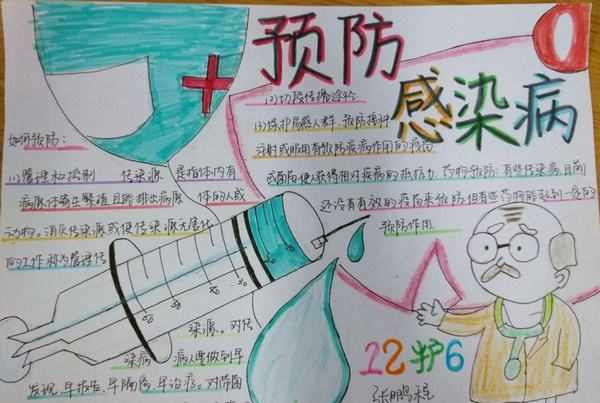 预防
感染病
如何预防:
(2)切段传播途径
(3)保护易感人群:预防接种
(1)管理和控制 传染源 是指体内有
注射或服用有效防疫病作用的疫苗
病原体生长繁殖且能排出病原 体的人或
或菌苗使人获得相对疾病的抵抗力。药物预防:有些传染病,目前
动物。消灭传染源或使传染源无害化
还没有有效的疫苗来预防但有些药物能起到一定的
的工作称为管理传
预防作用
染源。对传
染病 病人要做到早
发现、早报告、早隔离、早治疗。对带菌
12护6
张鹏程